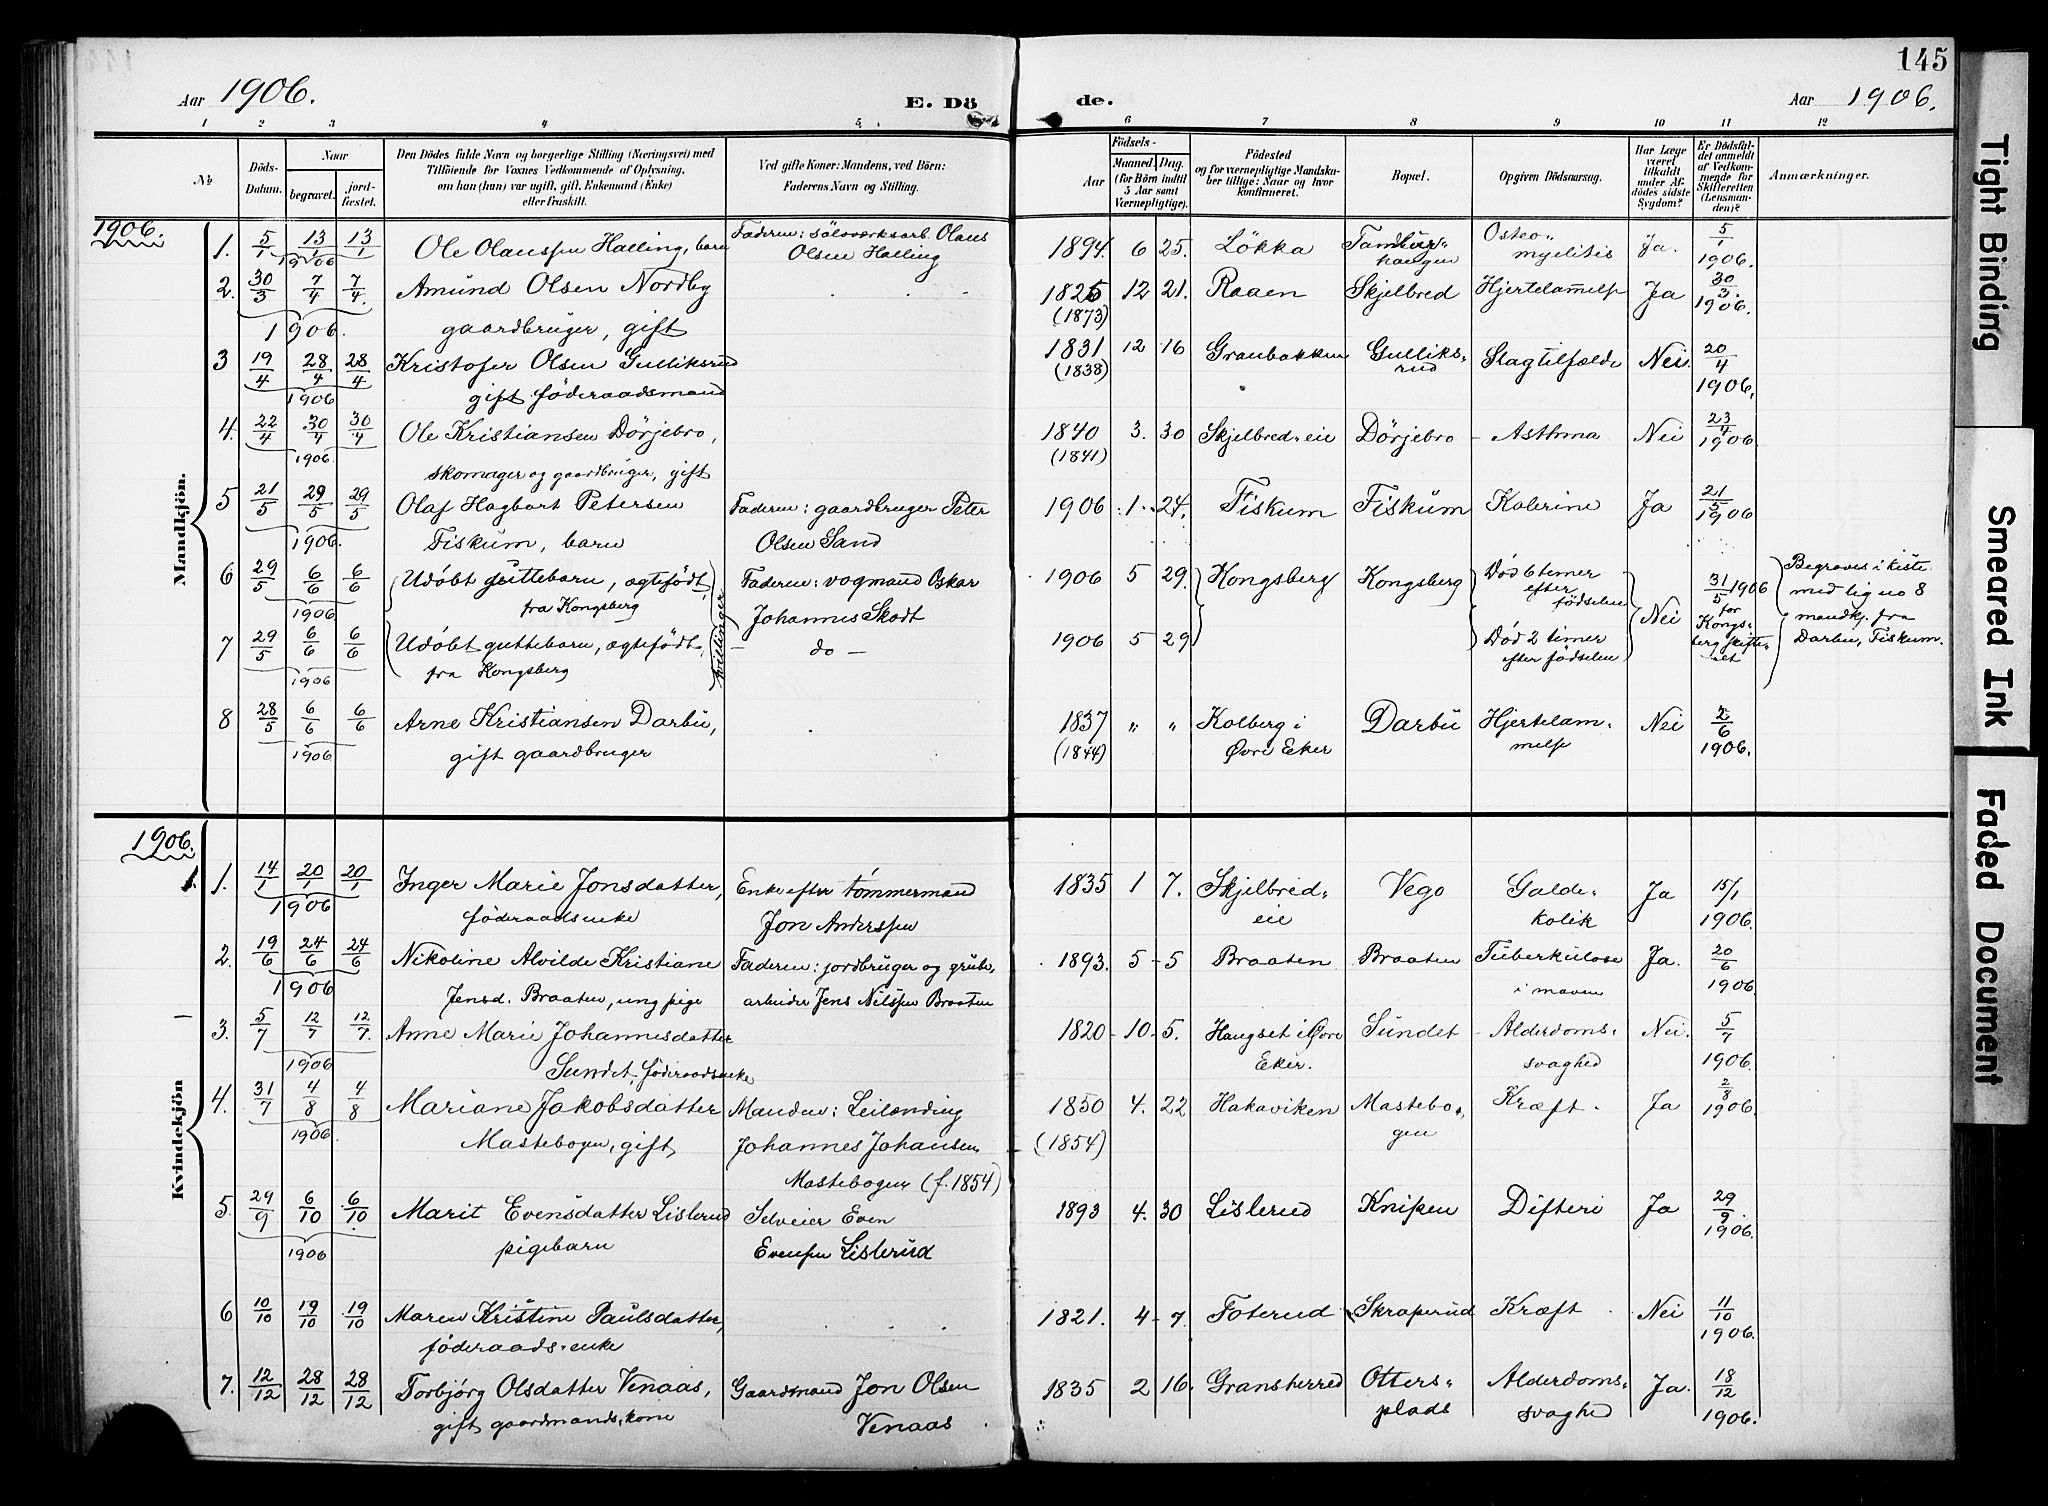 145
Aar 1906. E. Dö de. Aar 1906.
1 2 3 4 5. 6 7 8 9 10 11 12
No Döds-Datum. Naar begravet. jord-fæstet. Den Dödes fulde Navn og borgerlige Stilling (Næringsvei) med Tilföiende for Voxnes Vedkommende af Oplysning, om han (hun) var ugift, gift, Enkemand (Enke) eller fraskilt. Ved gifte Koner: Mandens, ved Börn: Faderens Navn og Stilling. Födsels- Aar Maaned. Dag. (for Börn indtil 5 Aar samt Værnepligtige). Födested og for værnepligtige Mandskaber tillige: Naar og hvor konfirmeret. Bopæl. Opgiven Dödsaarsag. Har Læge været tilkaldt under Afdödes sidste Sygdom? Er Dödsfaldet anmeldt af Vedkommende for Skifteretten (Lensmanden)? Anmærkninger.
1906.
Mandkjön.
1. 5/1 13/1 13/1 Ole Olaussen Halling, barn Faderen: sölvverksarb. Olaus 1894 6 25. Lökka Osteo- Ja. 5/1
1906 Olsen Halling myelitis 1906.
2. 30/3 7/4 7/4. Amund Olsen Nordby 1825 12 21. Raaen Skjelbred Hjertelammelse Ja 30/3.
1906. gaardbruger, gift (1873) 1906.
3 19/4 28/4 28/4 Kristofer Olsen Gulliksrud 1831 12 16 Granbakken Gulliks- Slagtilfælde Nei. 20/4
1906 gift föderaadsmand (1838) rud 1906.
4. 22/4 30/4 30/4 Ole Kristiansen Dörjebro, 1840 3. 30 Skjelbred-eie Dörjebro Asthma Nei 23/4
1906. skomager og gaardbruger, gift (1841) 1906
5 21/5 29/5 29/5 Olaf Hagbart Petersen Faderen: gaardbruger Peter 1906 1 24. Fiskum Fiskum Kolerine Ja 21/5
1906. Fiskum, barn Olsen Sand 1906
6 29/5 6/6 6/6 Udöbt guttebarn, ægtefödt, Faderen: vognmand Oskar 1906 5 29. Kongsberg Kongsberg Död 6 timer efter födselen Nei 31/5 1906 Begraves i kiste
1906 fra Kongsberg tvillinger Johannes Skodt for Kongs- med lig no 8
7 29/5 6/6 6/6 Udöbt guttebarn, ægtefödt, – do – 1906 5 29 Död 2 timer berg skifte- mandkj. fra
1906 fra Kongsberg efter födselen ret Darbu, Fiskum.
8 28/5 6/6 6/6 Arne Kristiansen Darbu, 1837 " " Kolberg i Darbu Hjertelam- Nei 2/6
1906 gift gaardbruger (1844) Øvre Eker melse 1906.
1906.
Kvindekjön
1. 14/1 20/1 20/1 Inger Marie Jonsdatter, Enke efter tömmermand 1835 1 7. Skjelbred- Vego Galde- Ja 15/1
1906 föderaadsenke Jon Anderssen eie kolik 1906.
2. 19/6 24/6 24/6 Nikoline Alvilde Kristiane Faderen: jordbruger og grube- 1893. 5 - 5 Braaten Braaten Tuberkulose Ja. 20/6
1906 Jensd. Braaten, ung pige arbeider Jens Nilssen Braaten i maven 1906.
3. 5/7 12/7 12/7. Anne Marie Johannesdatter 1820 - 10 - 5. Haugset i Øvre Sundet Alderdoms- Nei. 5/7
1906 Sundet, föderaadsenke Eker. svaghed 1906.
4. 31/7 4/8 4/8 Mariane Jakobsdatter Manden: Leilænding 1850 4. 22 Hakaviken Mastebo- Kræft. Ja 2/8
1906. Mastebogen, gift, Johannes Johansen (1854) gen 1906.
Mastebogen (f. 1854)
5. 29/9 6/10 6/10 Marit Evensdatter Lislerud Selveier Even 1893 4. 30 Lislerud Knipen Difteri Ja 29/9.
1906 pigebarn Evensen Lislerud 1906.
6 10/10 19/10 19/10 Maren Kristine Paulsdatter, 1821. 4 - 7. Foterud Skraperud Kræft Nei 11/10
föderaads-enke 1906.
7. 12/12 28/12 28/12 Torbjörg Olsdatter Venaas, Gaardmand Jon Olsen 1835 2 16. Gransherred Otters- Alderdoms- Ja. 18/12
gift gaardmands-kone Venaas plads svaghed 1906.
Tight Binding
Smeared Ink
Faded Document